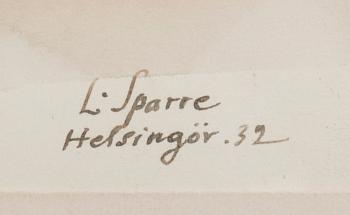 L. Sparre
Helsingör. 32